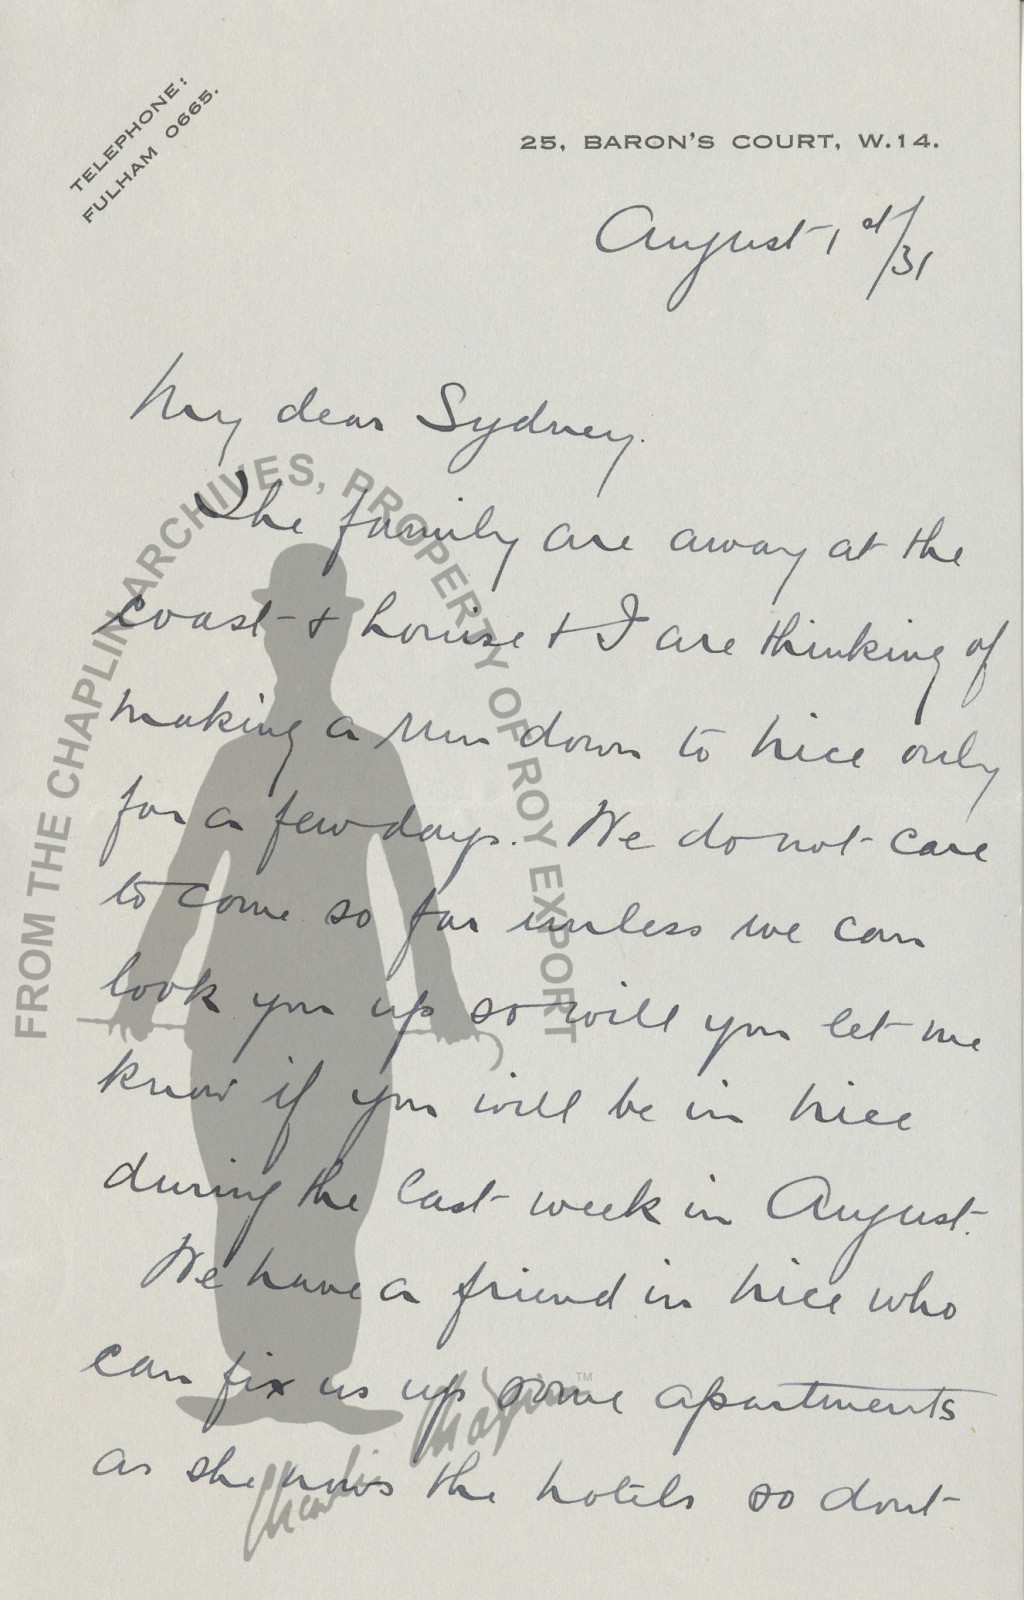 TELEPHONE:
FULHAM 0665.
25, BARON'S COURT, W.14.
August 1st/31
My dear Sydney.
The family are away at the
coast & Louise & I are thinking of
making a run down to Nice only
for a few days. We do not care
to come so far unless we can
look you up so will you let me
know if you will be in Nice
during the last week in August.
We have a friend in Nice who
can fix us up some apartments
as she knows the hotels so dont
FROM THE CHAPLIN ARCHIVES, PROPERTY OF ROY EXPORT
Charlie Chaplin™